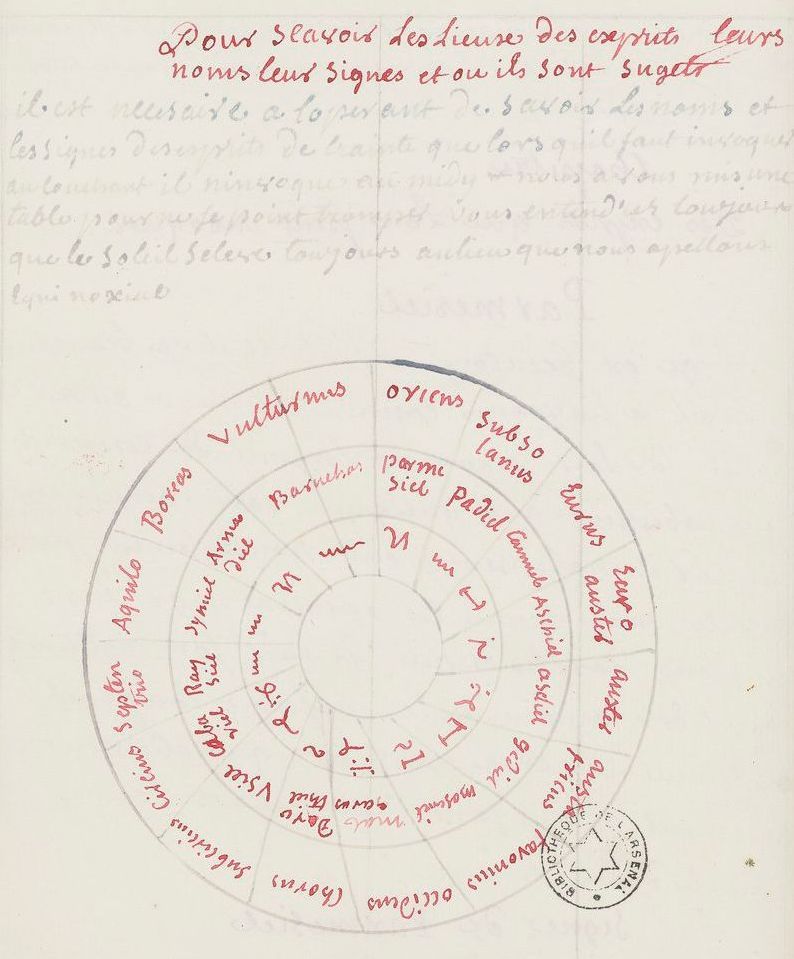 Pour scavoir Les Lieuse des esprits leurs
noms leur signes et ou ils sont sugets
il est necesaire a loperant de savoir Les noms et
les signes des esprits de crainte que lors quil faut invoquer
au couchant il ninvoque au midy nous avous mis une
table pour ne se point tromper, vous entend'es toujours
que le Soleil se leve toujours au lieu que nous apellons
Equinoxial
oriens
subso
lanus
Eurus
Euro
auster
auster
aust
ricus
favonius
occidens
Chorus
subcircius
Circius
septen
trio
Aquilo
Boreas
Vulturnus
parme
siel
padiel
Camuel
Aschiel
asdiel
gediel
maseriel
mal
Doro
Vsiel
Cab
riel
Ray
siel
Symiel
Arma
diel
Baruchas
BIBLIOTHEQUE DE L'ARSENAL